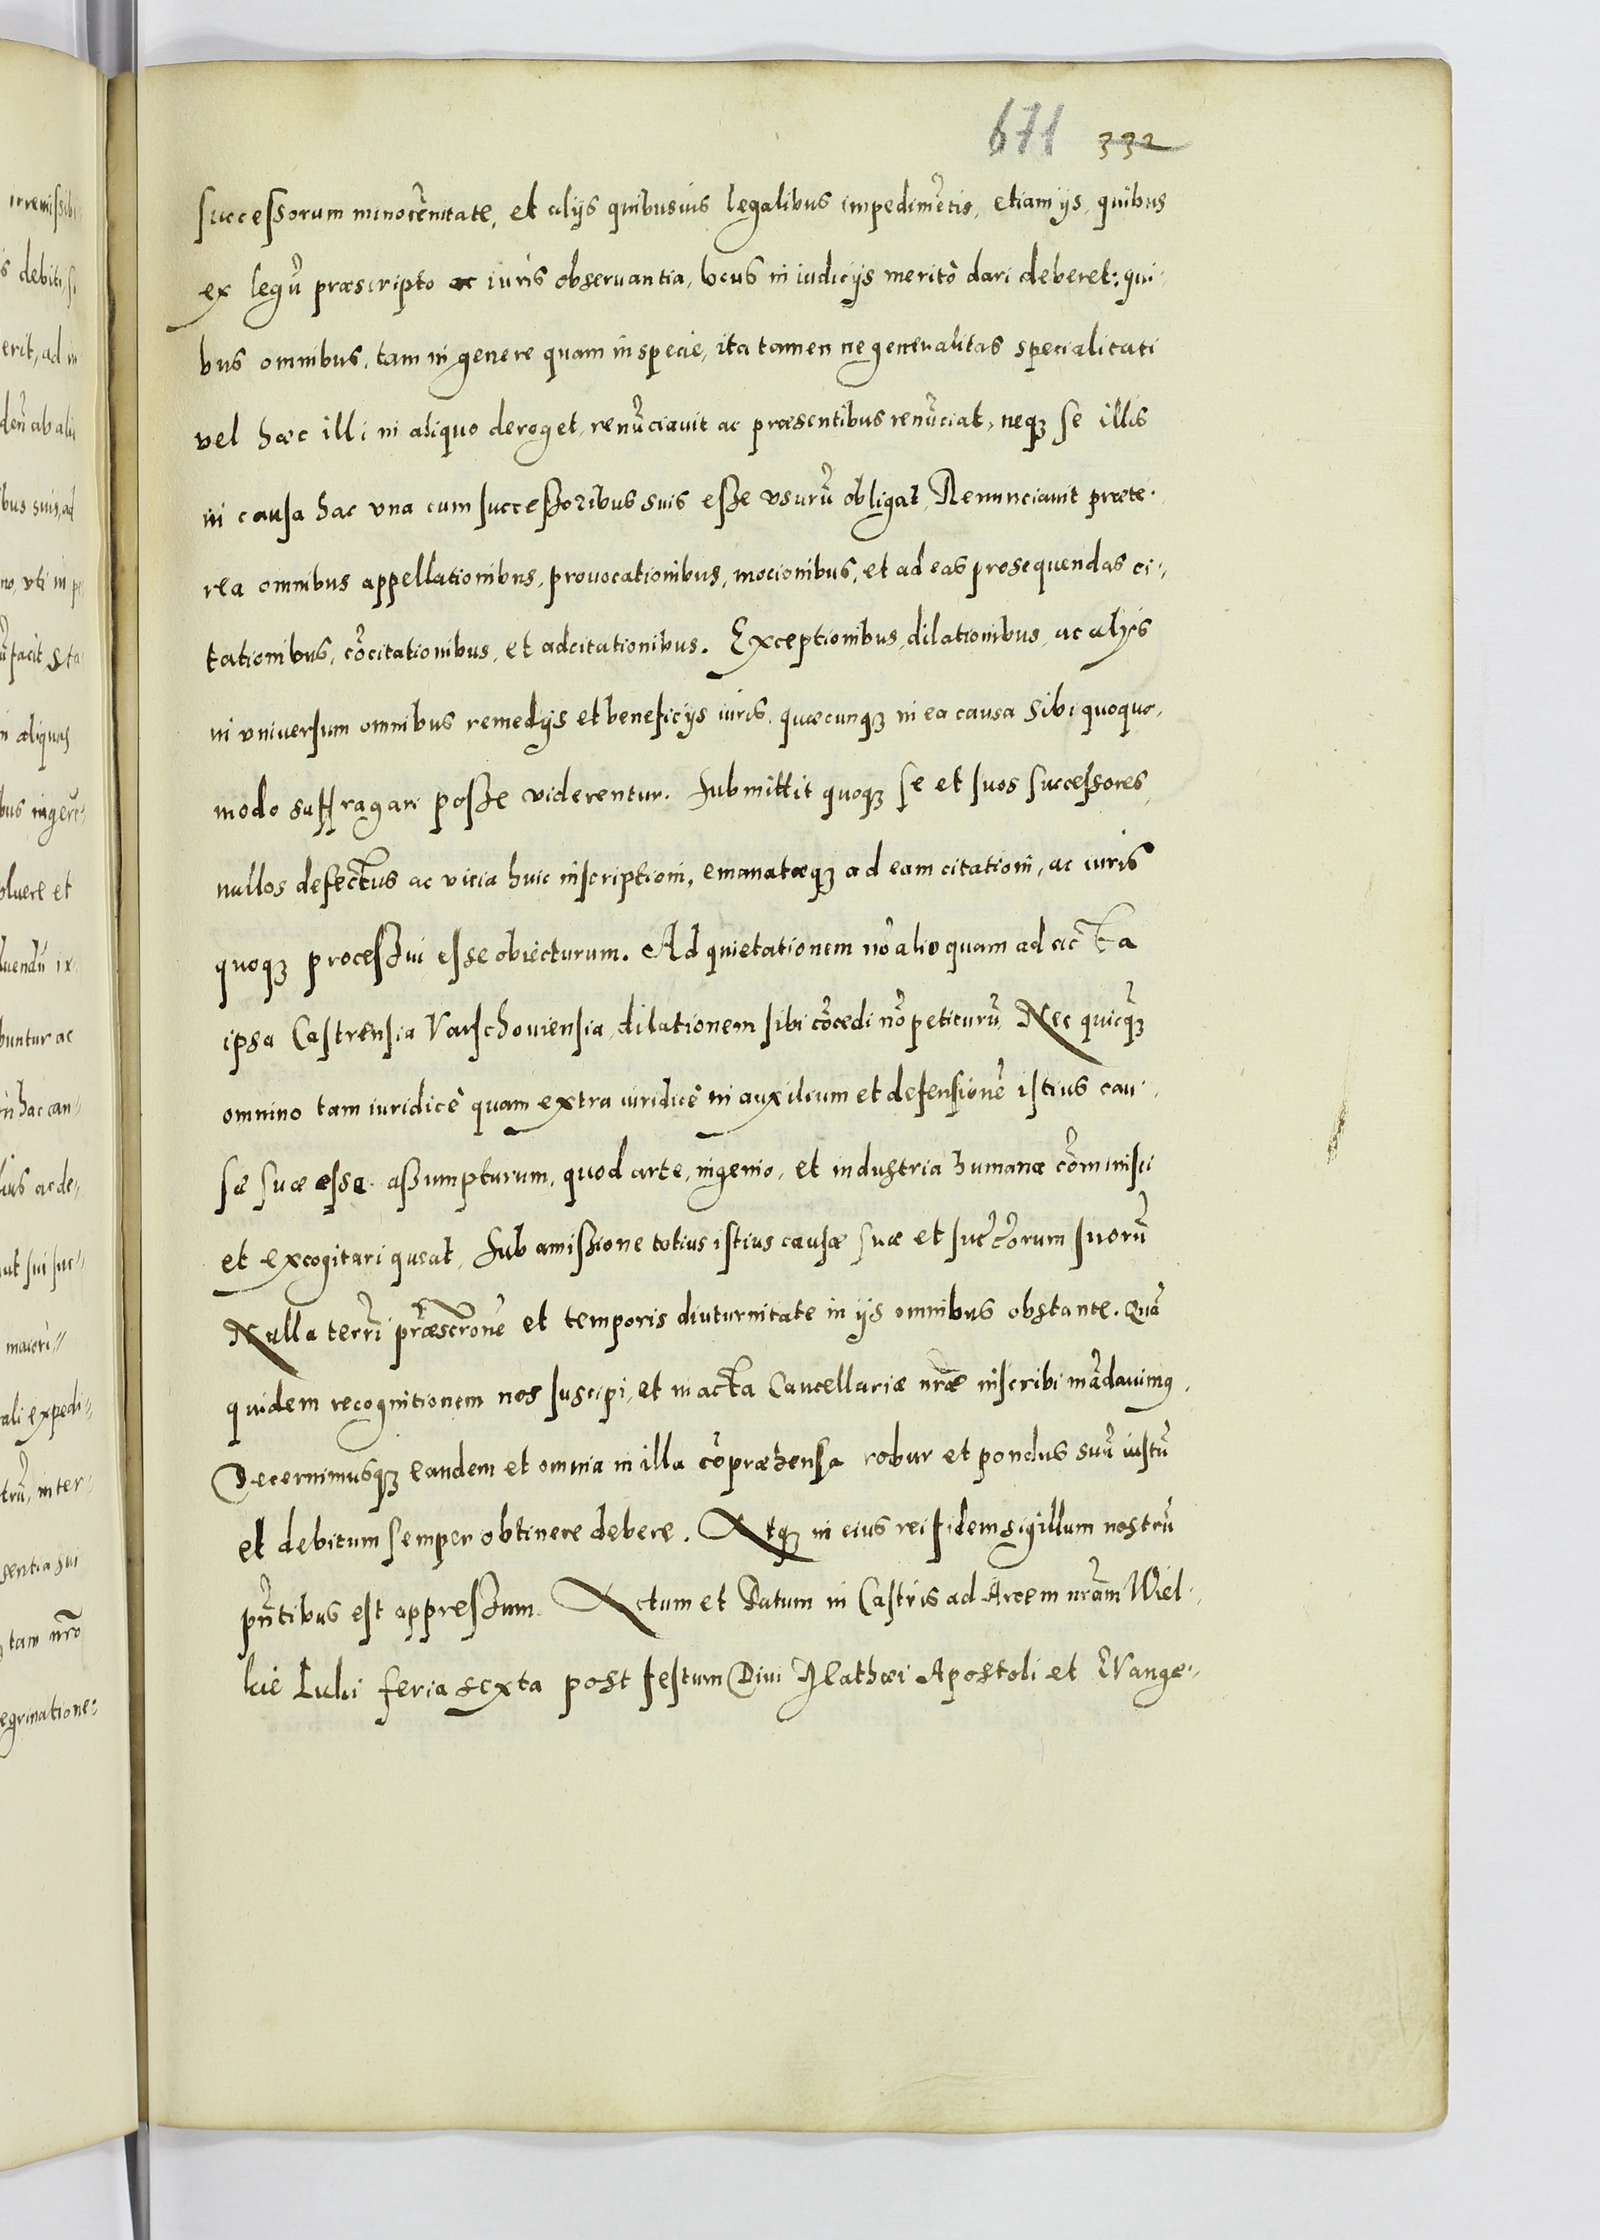 671 332
successorum minorēnitate, et alijs quibusuis legalibus impedimētis, etiam ijs, quibus
ex legū præscripto ac iuris observantia, locus in iudicijs meritò dari deberet: qui-
bus omnibus, tam in genere quam in specie, ita tamen ne generalitas specialitati
vel hæc illi in aliquo deroget, renūciauit ac præsentibus renūciat, neqꝫ se illis
in causa hac vna cum successoribus suis esse vsurū obligat, Renunciauit præte-
rea omnibus appellationibus, prouocationibus, mocionibus, et ad eas prosequendas ci-
tationibus, cōcitationibus, et adcitationibus. Exceptionibus, dilationibus, ac alijs
in vniuersum omnibus remedijs et beneficijs iuris, quæcunqꝫ in ea causa sibi quoquo-
modo suffragari posse viderentur. Submittit quoqꝫ se et suos successores,
nullos defectus ac vicia huic inscriptioni, emanatæqꝫ ad eam citationi, ac iuris
quoqꝫ processui esse obiecturum. Ad quietationem nō alio quam ad acta
ipsa Castrensia Varschouiensia, dilationem sibi cōcedi nō petiturū, Nec quicqūꝫ
omnino tam iuridicè quam extra iuridicè in auxilium et defensionē istius cau-
sæ suæ esse assumpturum, quod arte, ingenio, et industria humana cōminisci
et excogitari queat, Sub amissione totius istius causæ suæ et succ̄orum suorū
Nulla terrī præscrōne et temporis diuturnitate in ijs omnibus obstante. Quā
quidem recognitionem nos suscipi, et in acta Cancellariæ nrāe inscribi mādauimus,
Decernimusqꝫ eandem et omnia in illa cōpræhensa robur et pondus suū iustū
et debitum semper obtinere debere. Atqꝫ in eius rei fidem sigillum nostrū
pn̄tibus est appressum. Actum et Datum in Castris ad Arcem nrām Wiel-
kie Luki feria sexta post festum Diui Mathæi Apostoli et Evange-